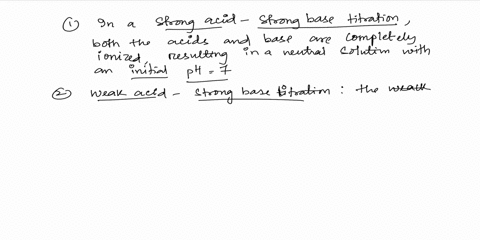 ① In a strong acid - strong base titration,
both the acids and base are completely
ionized resulting in a neutral solution with
an initial pH = 7
② weak acid - strong base titration : the weak